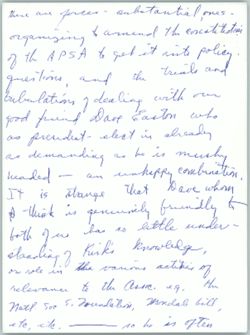 there are forces - substantial, ones -
organizing to amend the constitution
of the APSA to get it into policy
questions, and the trials and
tribulations of dealing with our
good friend Dave Easton who
as president-elect is already
as demanding as he is mushy
headed — an unhappy combination.
It is strange that Dave whom
I think is genuinely friendly to
both of us has so little under-
standing of Kirk's knowledge,
or role in the various activities of
relevance to the Assoc. e.g. the
Natl Soc S. Foundation, Mondale bill,
etc, etc. — so he is often